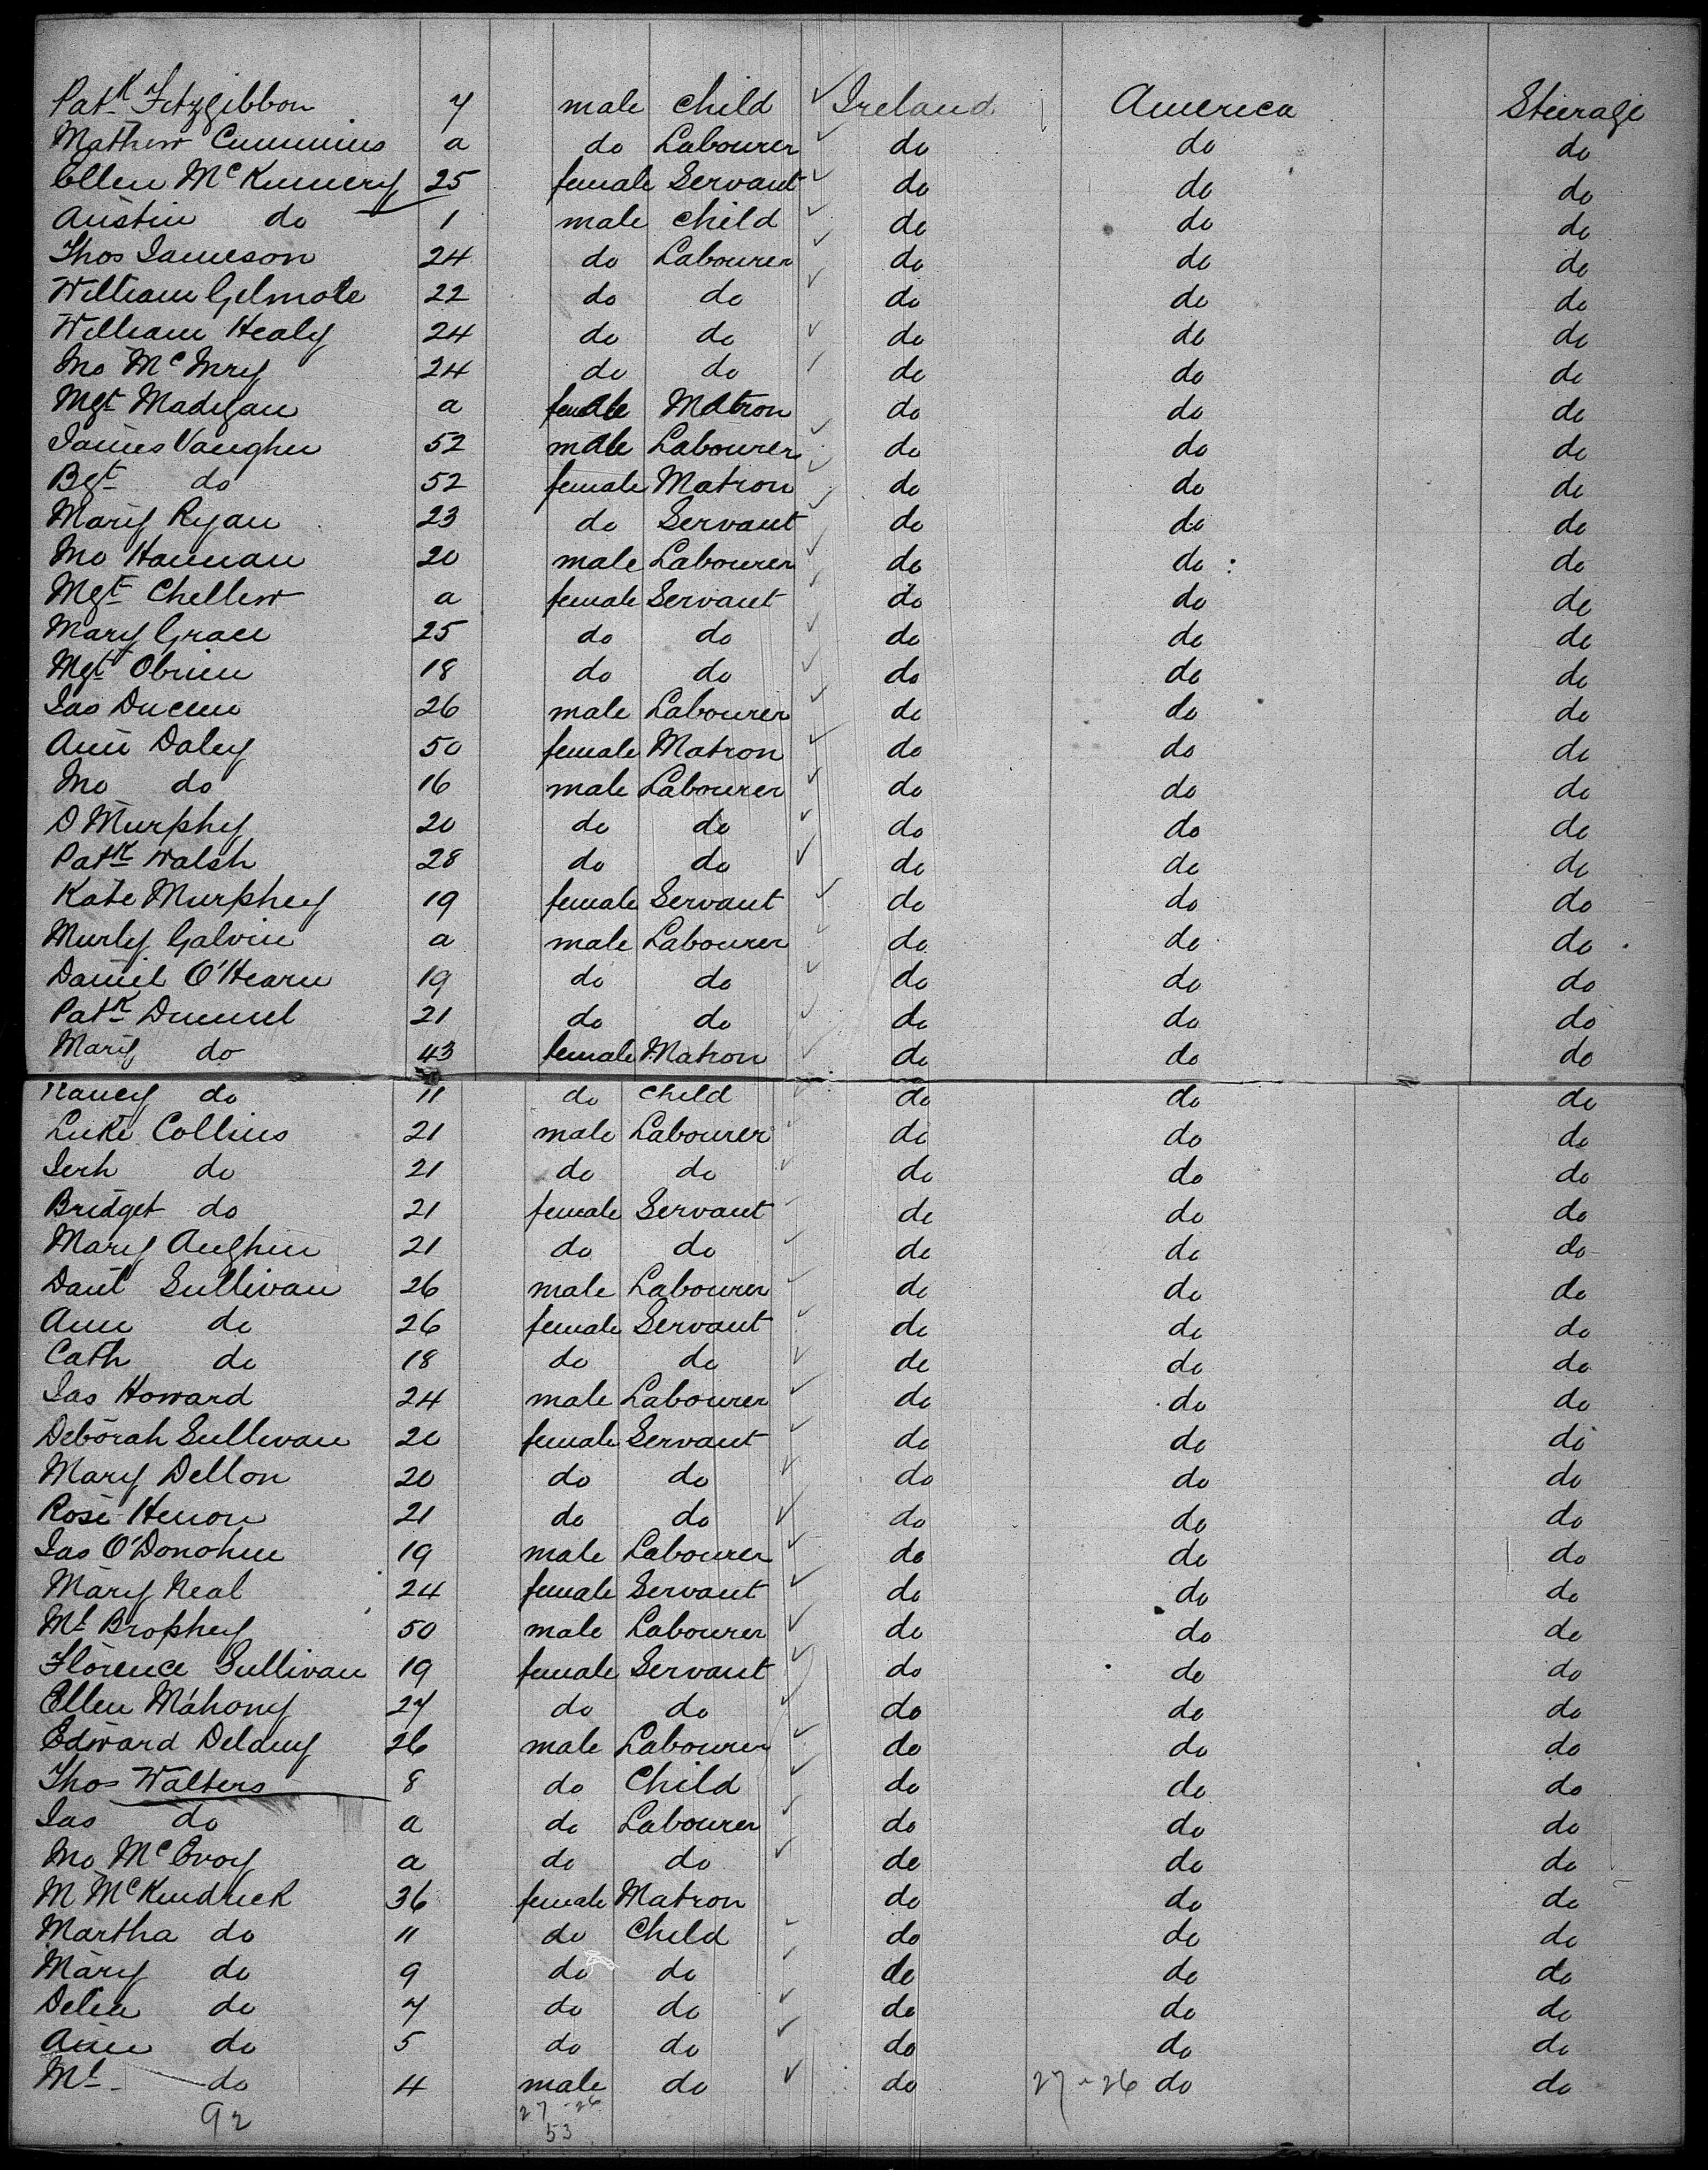 Patk Fitzgibbon 7 male child Ireland America Steerage
Mathew Cummins a do Labourer do do do
Ellen McKumery 25 female Servant do do do
Austin do 1 male child do do do
Thos Jameson 24 do Labourer do do do
William Gilmore 22 do do do do do
William Healy 24 do do do do do
Jno McInry 24 do do do do do
Mgt Madigan a female Matron do do do
James Vaughn 52 male Labourer do do do
Bgt do 52 female Matron do do do
Mary Ryan 23 do Servant do do do
Jno Hannan 20 male Labourer do do do
Mgt Chellew a female Servant do do do
Mary Grace 25 do do do do do
Mgt Obrien 18 do do do do do
Jas 26 male Labourer do do do
Ann Daley 50 female Matron do do do
Jno do 16 male Labourer do do do
D Murphy 20 do do do do do
Patk Walsh 28 do do do do do
Kate Murphey 19 female Servant do do do
Murly Galvin a male Labourer do do do
Daniel O'Hearn 19 do do do do do
Patk 21 do do do do do
Mary do 43 female Matron do do do
Nancy do 11 do child do do do
Luke Collins 21 male Labourer do do do
Jerh do 21 do do do do do
Bridget do 21 female Servant do do do
Mary Aughin 21 do do do do do
Danl Sullivan 26 male Labourer do do do
Ann do 26 female Servant do do do
Cath do 18 do do do do do
Jas Howard 24 male Labourer do do do
Deborah Sullivan 20 female Servant do do do
Mary Dellon 20 do do do do do
Rose Heron 21 do do do do do
Jas O'Donohue 19 male Labourer do do do
Mary Neal 24 female Servant do do do
Ml Brophey 50 male Labourer do do do
Florence Sullivan 19 female Servant do do do
Ellen Mahony 27 do do do do do
Edward Delany 26 male Labourer do do do
Thos Walters 8 do Child do do do
Jas do a do Labourer do do do
Jno McEvoy a do do do do do
M McKendrick 36 female Matron do do do
Martha do 11 do Child do do do
Mary do 9 do do do do do
Delia do 7 do do do do do
Ann do 5 do do do do do
Ml do 4 male do do 27-26 do do
92 27-26
53